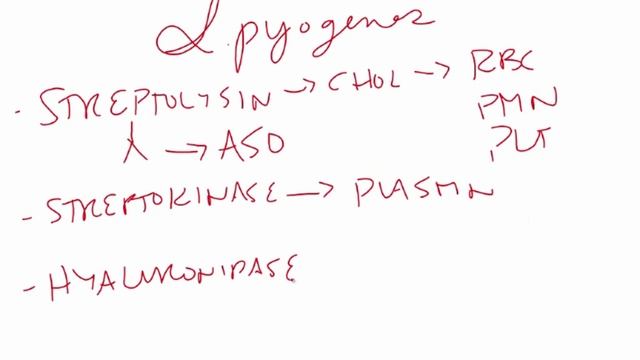 S. pyogenes
- STREPTOLYSIN → CHOL → RBC
PMN
PLT
λ → ASO
- STREPTOKINASE → PLASMN
- HYALURONIDASE